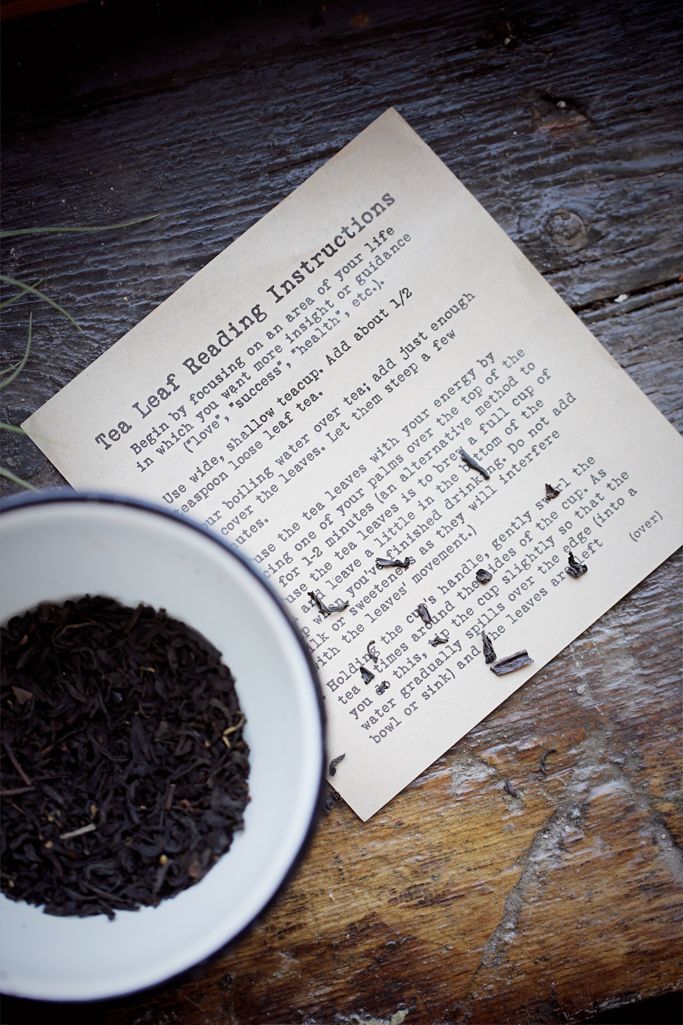 Tea Leaf Reading Instructions
Begin by focusing on an area of your life
in which you want more insight or guidance
("love", "success", "health", etc.).
Use wide, shallow teacup. Add about 1/2
teaspoon loose leaf tea.
our boiling water over tea; add just enough
cover the leaves. Let them steep a few
utes.
use the tea leaves with your energy by
cing one of your palms over the top of the
for 1-2 minutes (an alternative method to
use the tea leaves is to brew a full cup of
and leave a little in the bottom of the
p when you've finished drinking. Do not add
lk or sweetener as they will interfere
ith the leaves' movement.]
Holding the cup's handle, gently swirl the
tea times around the sides of the cup. As
you this, the cup slightly so that the
water gradually spills over the edge (into a
bowl or sink) and the leaves are left
(over)